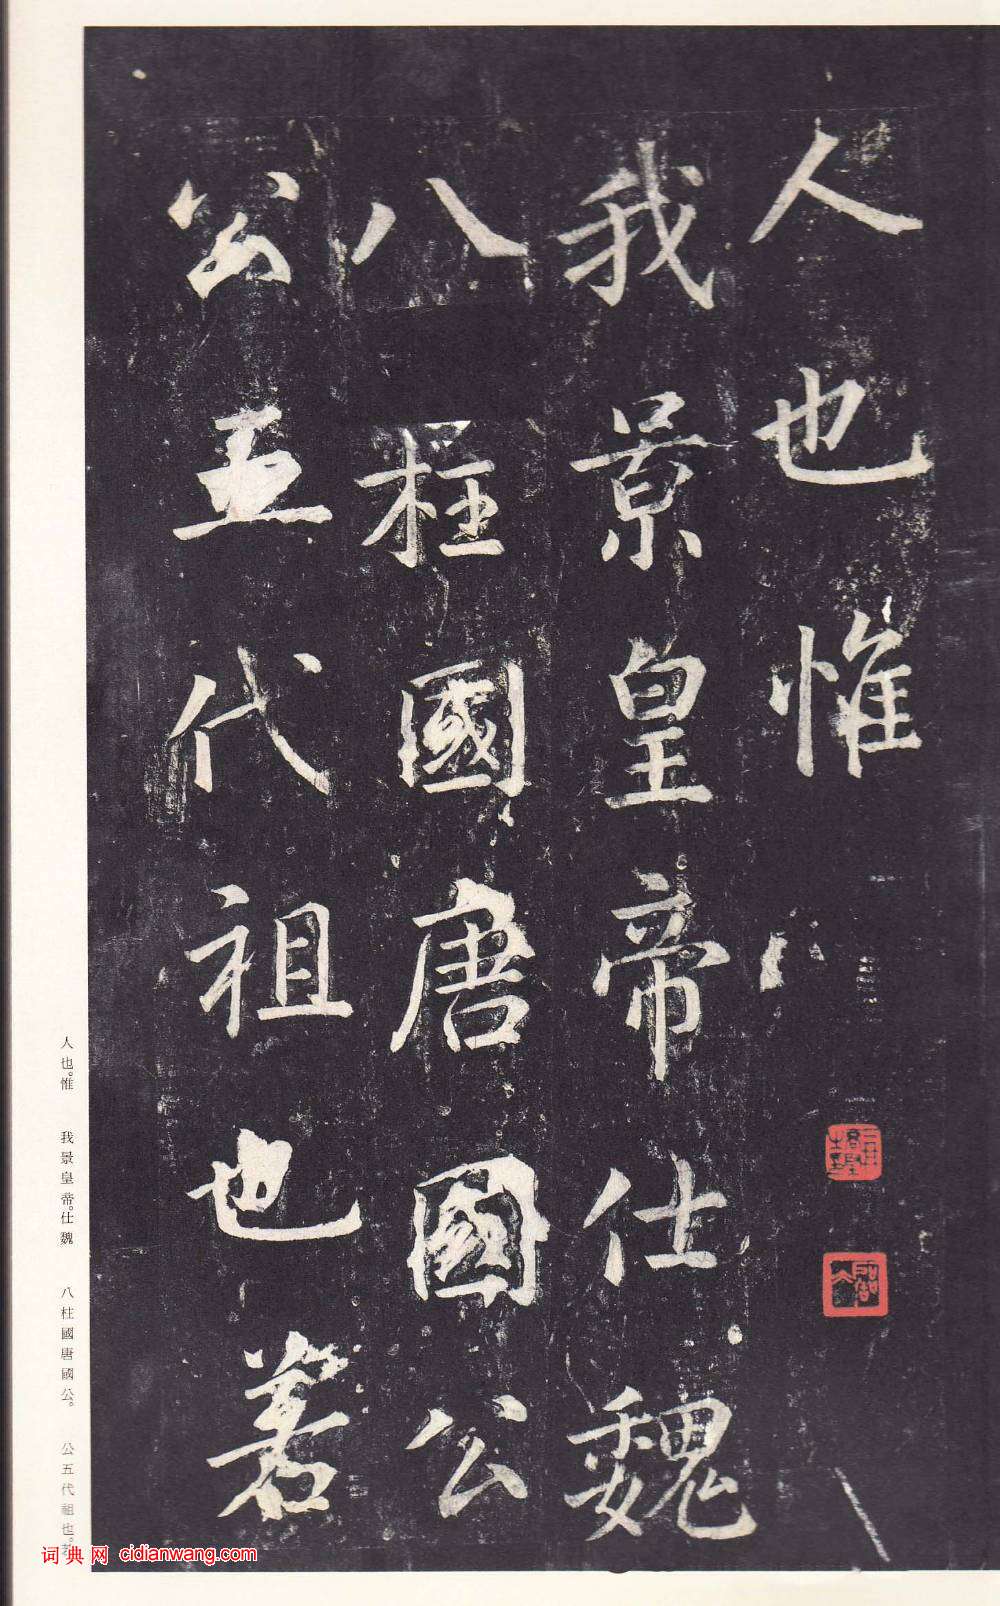 人也惟
我景皇帝仕魏
八柱國唐國公
公五代祖也若
人也。惟　我景皇帝。仕魏　八柱國唐國公。　公五代祖也。若
词典网 cidianwang.com